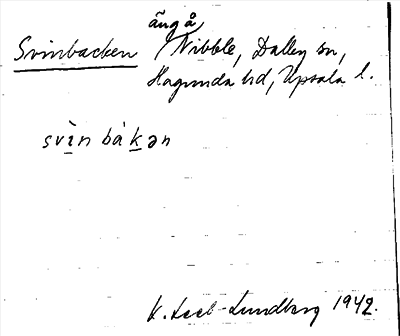 äng å
Svinbacken Nibble, Dalby sn,
Hagunda hd, Upsala l.
svìn bákən
K. Lundberg 1942.